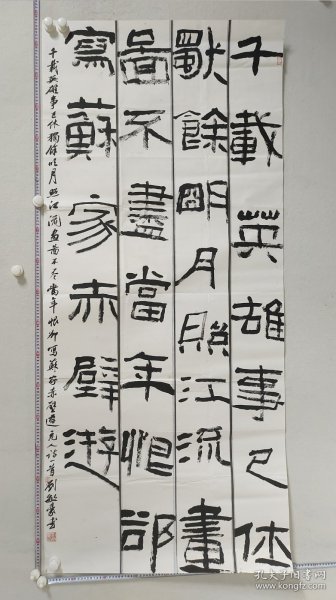 千載英雄事已休
獨餘明月照江流畫
啚不盡當年恨卻
寫蘇家赤壁遊
千載英雄事已休獨餘明月照江流畫啚不尽當年恨卻寫蘇家赤壁遊元人詩一首劉書
孔夫子旧书网